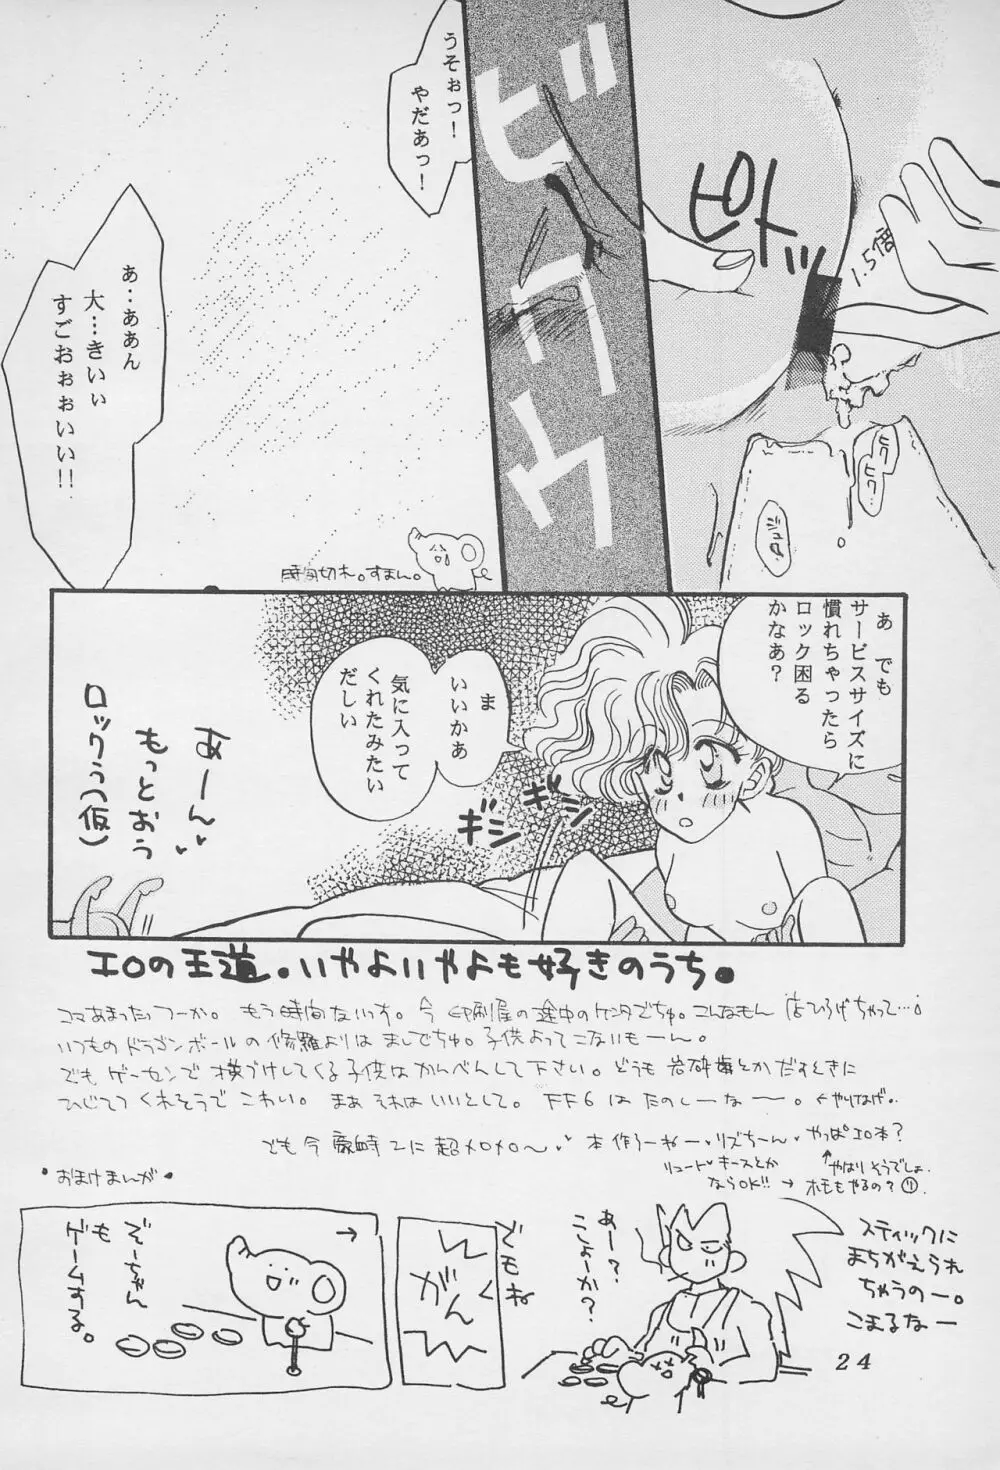 ピトッ
1.5倍
ヒク
ヒク
ビクウ
うそぉっ！
やだあっ！
あ‥ああん
大…きいぃ
すごおぉぉいい!!
時間切れ。すまん。
あ でも
サービスサイズに
慣れちゃったら
ロック困る
かなあ？
ま
いいかあ
気に入って
くれたみたい
だしい
ギシ
ギシ
あーん
もっとおう
(仮)
エロの王道。いやよいやよも好きのうち。
コマあまったっつーか。もう時間ないっす。今印刷屋の途中のケンタでちゅ。こんなもん
いつものドラゴンボールの修羅よりはましでちゅ。子供よってこないもーん。
でもゲーセンで横づけしてくる子供はかんべんして下さい。どうも岩砕歯とかだすときに
ひじてつくれそうでこわい。まぁそれはいいとして。FF6はたのしーなー。←やりなげ。
でも今
に超メロメロ〜
やっぱエロ本？
リュート キースとか
ならOK!!→
↑やはりそうでしょ。
ホモもやるの？
おまけまんが
→
ぞーちゃん
も
ゲームする。
がん
でもね
あー？
こしょーか？
スティックに
まちがえられ
ちゃうのー。
こまるなー
24